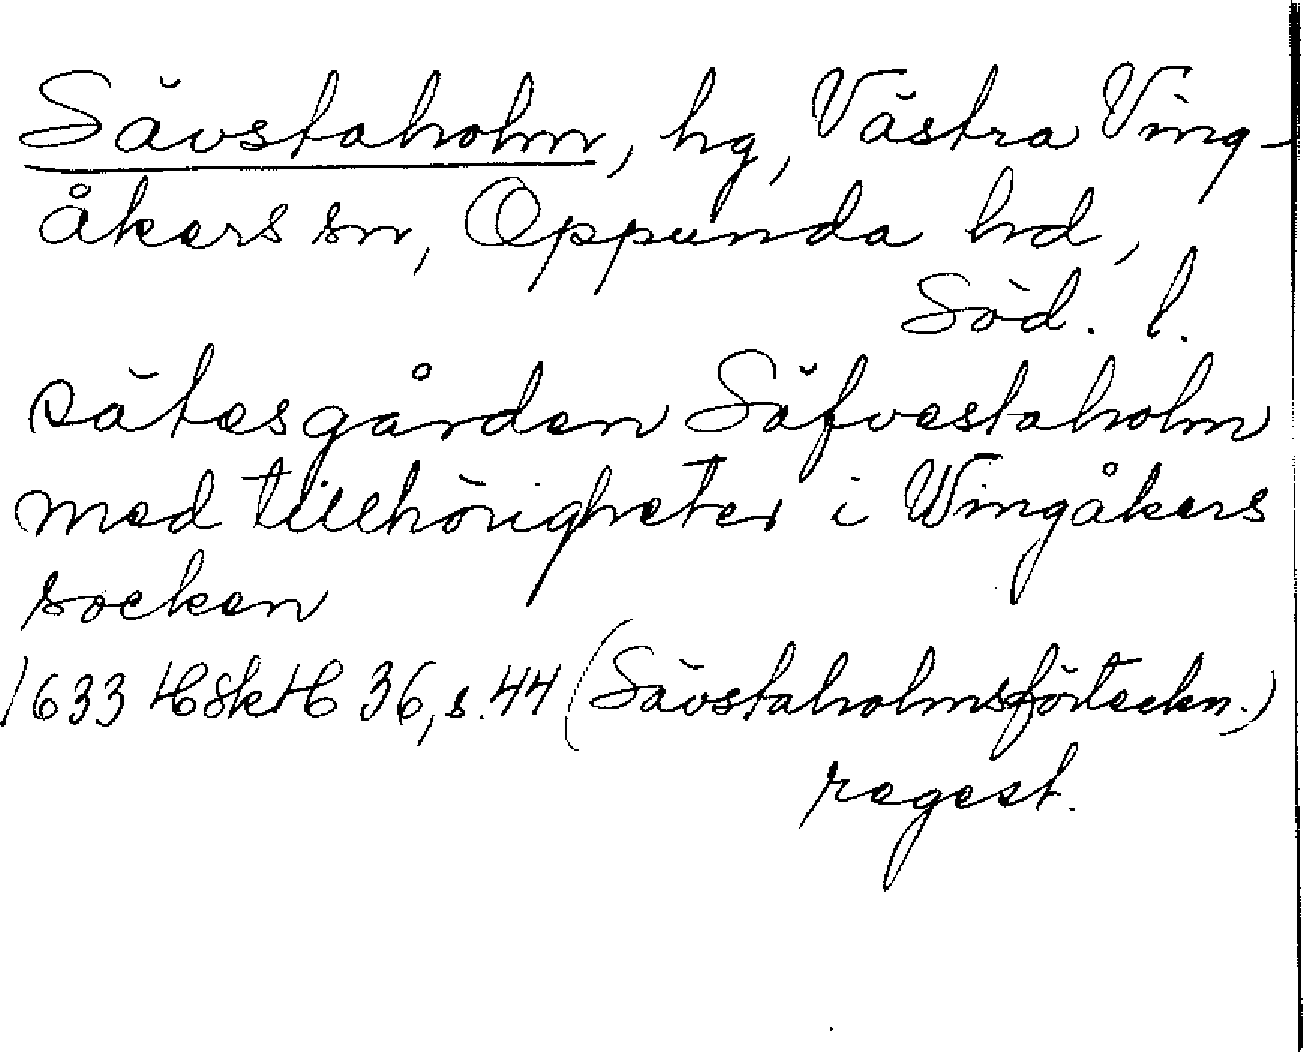 Sävstaholm, hg, Västra Ving-
åkers sn, Oppunda hd,
Söd. l.
sätesgården Säfvestaholm
med tillhörigheter i Wingåkers
socken
1633 HSkH 36, s. 44 (Sävstaholmsförteckn.)
regest.